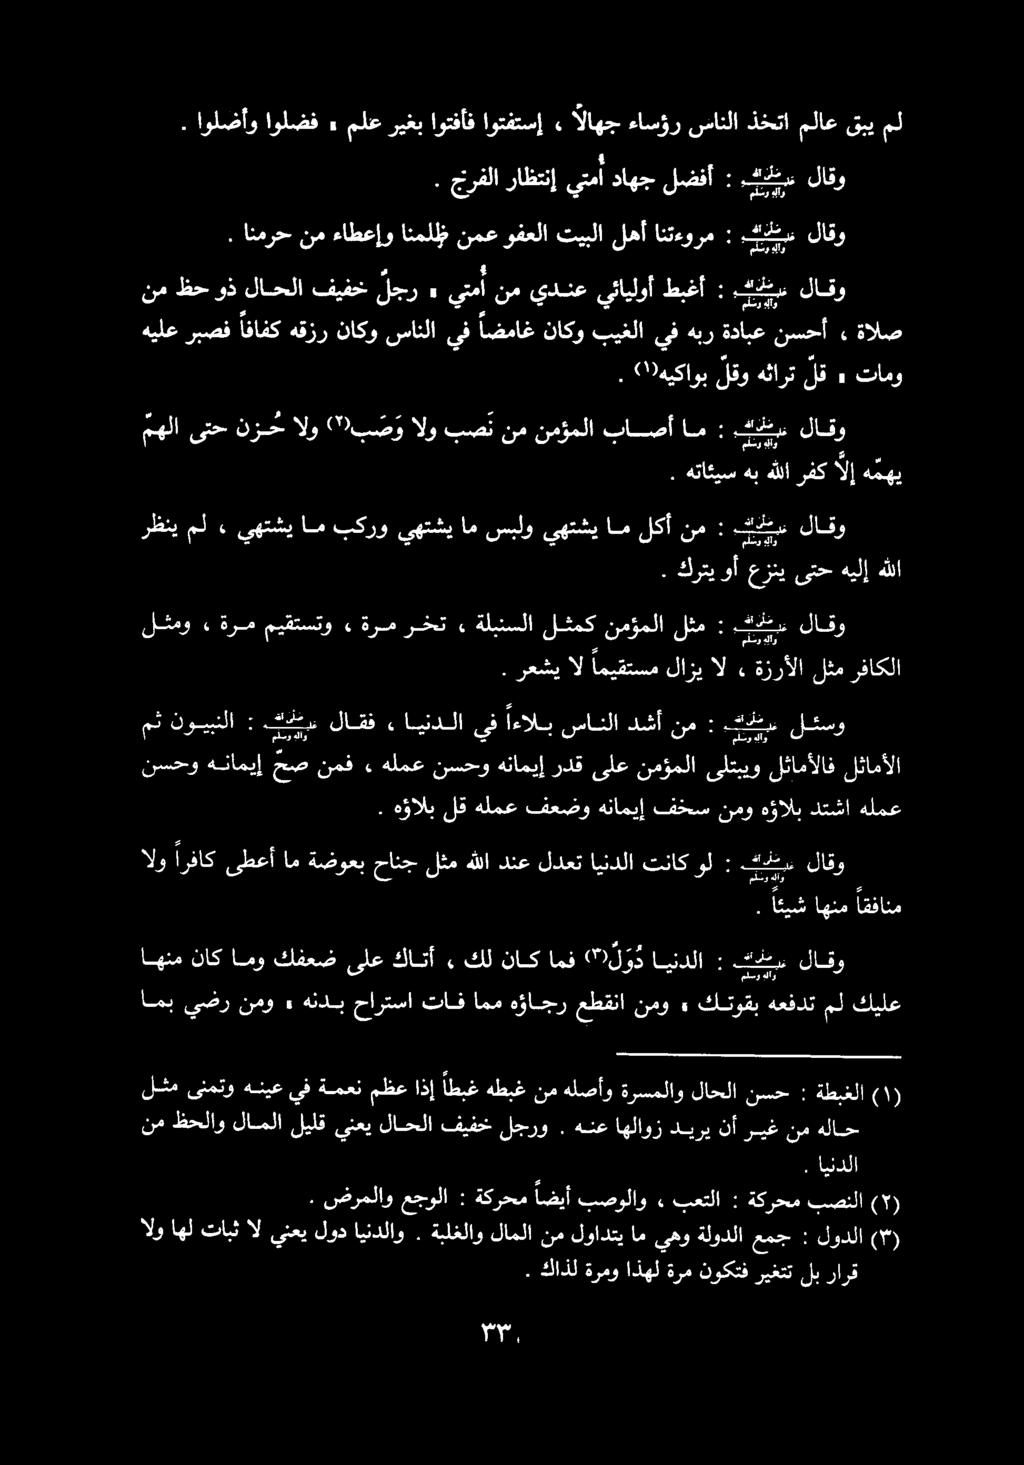 لم يبق عالم اتخذ الناس رؤساء جهالاً ، إستفتوا فأفتوا بغير علم ، فضلوا وأضلوا .
وقال صلى الله عليه وآله وسلم : أفضل جهاد أُمتي إنتظار الفرج .
وقال صلى الله عليه وآله وسلم : مروءتنا أهل البيت العفو عمن ظلمنا وإعطاء من حرمنا .
وقال صلى الله عليه وآله وسلم : أغبط أوليائي عندي من أُمتي ، رجلٌ خفيف الحال ذو حظ من
صلاة ، أحسن عبادة ربه في الغيب وكان غامضاً في الناس وكان رزقه كفافاً فصبر عليه
ومات ، قلّ تراثه وقلّ بواكيه(١) .
وقال صلى الله عليه وآله وسلم : ما أصاب المؤمن من نَصب ولا وَصَب(٢) ولا حُزن حتى الهمّ
يهمّه إلاّ كفر الله به سيئاته .
وقال صلى الله عليه وآله وسلم : من أكل ما يشتهي ولبس ما يشتهي وركب ما يشتهي ، لم ينظر
الله إليه حتى ينزع أو يترك .
وقال صلى الله عليه وآله وسلم : مثل المؤمن كمثل السنبلة ، تخر مرة ، وتستقيم مرة ، ومثل
الكافر مثل الأرزة ، لا يزال مستقيماً لا يشعر .
وسئل صلى الله عليه وآله وسلم : من أشد الناس بلاءاً في الدنيا ، فقال صلى الله عليه وآله وسلم : النبيون ثم
الأماثل فالأماثل ويبتلى المؤمن على قدر إيمانه وحسن عمله ، فمن صحّ إيمانه وحسن
عمله اشتد بلاؤه ومن سخف إيمانه وضعف عمله قل بلاؤه .
وقال صلى الله عليه وآله وسلم : لو كانت الدنيا تعدل عند الله مثل جناح بعوضة ما أعطى كافراً ولا
منافقاً منها شيئاً .
وقال صلى الله عليه وآله وسلم : الدنيا دُوَلٌ(٣) فما كان لك ، أتاك على ضعفك وما كان منها
عليك لم تدفعه بقوتك ، ومن انقطع رجاؤه مما فات استراح بدنه ، ومن رضي بما
(١) الغبطة : حسن الحال والمسرة وأصله من غبطه غبطاً إذا عظم نعمة في عينه وتمنى مثل
حاله من غير أن يريد زوالها عنه . ورجل خفيف الحال يعني قليل المال والحظ من
الدنيا .
(٢) النصب محركة : التعب ، والوصب أيضاً محركة : الوجع والمرض .
(٣) الدول : جمع الدولة وهي ما يتداول من المال والغلبة . والدنيا دول يعني لا ثبات لها ولا
قرار بل تتغير فتكون مرة لهذا ومرة لذاك .
٣٣